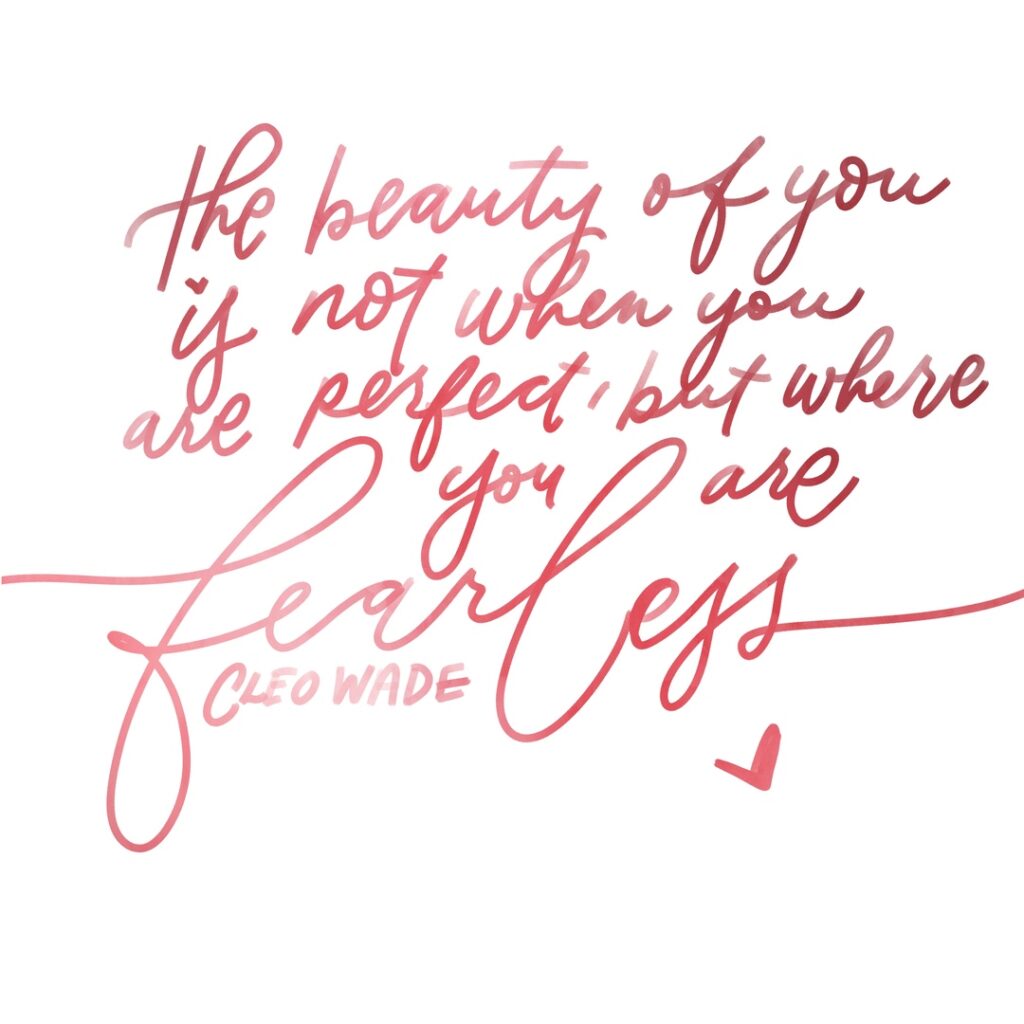 the beauty of you
is not when you
are perfect, but where
you are
fearless
CLEO WADE